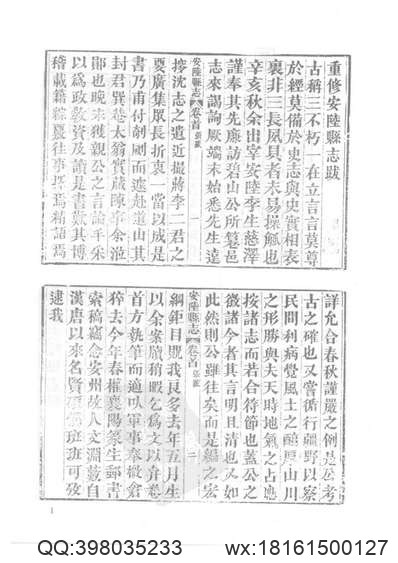 重修安陸縣志跋
古稱三不朽一在立言言莫尊
於經莫備於史志與史實相表
裏非三長夙具者未易操觚也
辛亥秋余由宰安陸李生慈澤
謹奉其先廉訪碧山公所纂邑
志來謁詢厥端末始悉先生遠
安陸縣志 卷首 舊跋 一
沈志之遺近擷蔣李二君之
要廣集衆長折衷一當以成是
書乃甫付剞劂而遽赴道山其
封君巽菴太翁實蕆陳事余涖
鄖也晚未獲親公之言論丰采
以爲政敎資及讀是書歎其博
稽載籍綜覈往事擇焉精語焉
詳允合春秋謹嚴之例是公考
古之確也又嘗循行疆野以察
民間利病覺風土之醇厚山川
之形勝與夫天時地氣之占應
按諸志而若合符節也蓋公之
徵諸今者其言明且清也又如
此然則公雖往矣而是編之宏
安陸縣志 卷首 舊跋 二
綱鉅目貺我良多去年五月生
以余案牘稍暇乞爲文以弁卷
首方執筆而適以軍事奉檄倉
猝去今年春權襄陽篆生郵書
索稿竊念安州故人文淵藪自
漢唐以來名賢碩班班可攷
逮我
1
QQ:398035233 wx:18161500127